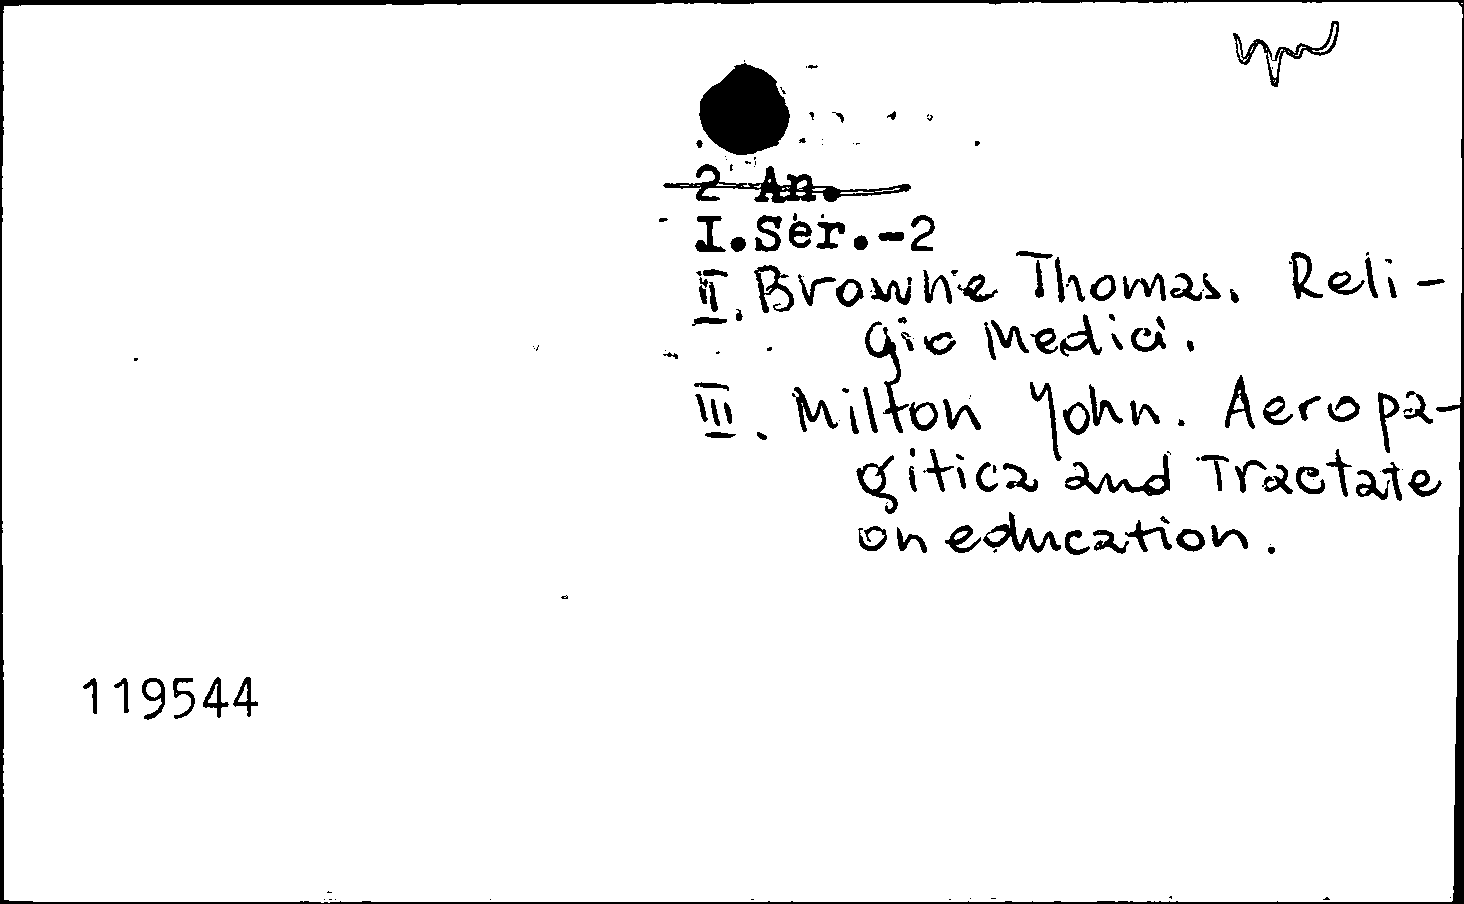 2 An.
I.Ser.-2
II. Browne Thomas. Reli-
gio Medici.
III. Milton John. Aeropa-
gitica and Tractate
on education.
119544